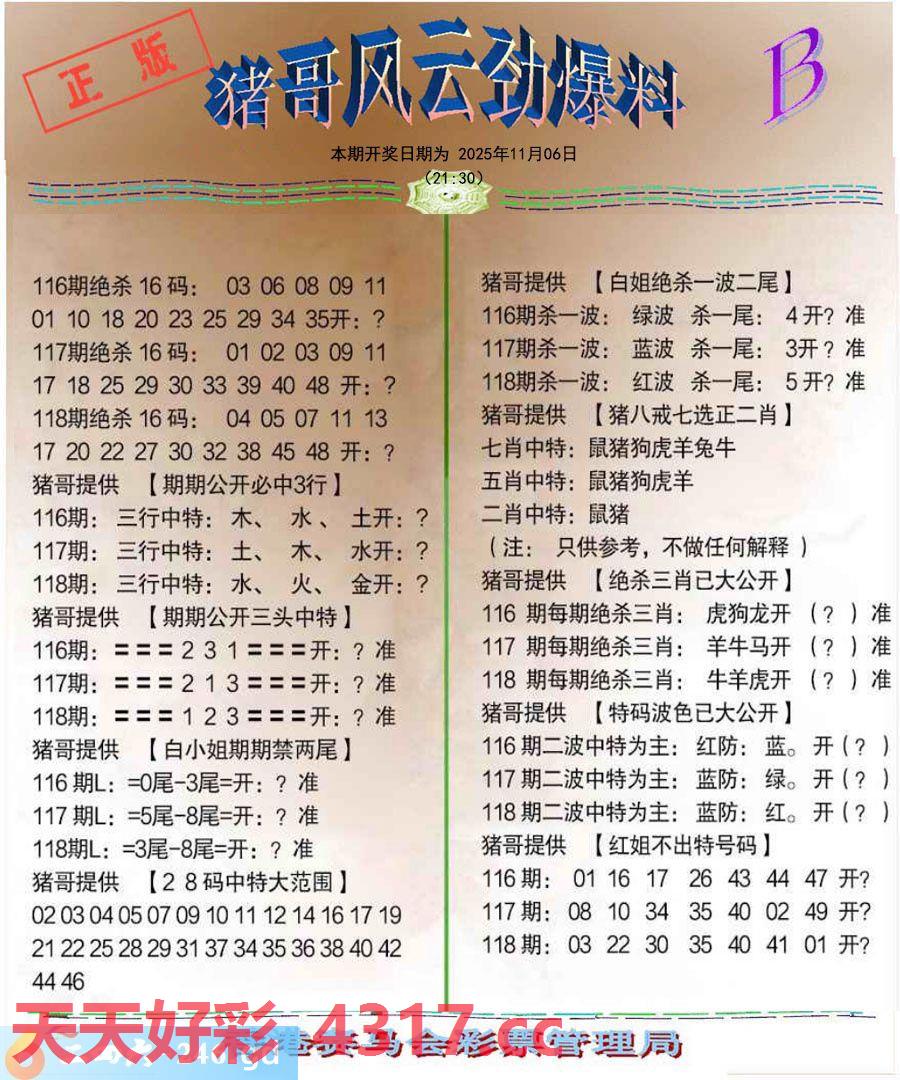 正版
猪哥风云劲爆料
B
本期开奖日期为 2025年11月06日
(21:30)
116期绝杀16码： 03 06 08 09 11
01 10 18 20 23 25 29 34 35开：?
117期绝杀16码： 01 02 03 09 11
17 18 25 29 30 33 39 40 48 开：?
118期绝杀16码： 04 05 07 11 13
17 20 22 27 30 32 38 45 48 开：?
猪哥提供 【期期公开必中3行】
116期： 三行中特： 木、 水、 土开：?
117期： 三行中特： 土、 木、 水开：?
118期： 三行中特： 水、 火、 金开：?
猪哥提供 【期期公开三头中特】
116期：〓〓〓2 3 1〓〓〓开：? 准
117期：〓〓〓2 1 3〓〓〓开：? 准
118期：〓〓〓1 2 3〓〓〓开：? 准
猪哥提供 【白小姐期期禁两尾】
116 期L：=0尾-3尾=开：? 准
117 期L：=5尾-8尾=开：? 准
118期L：=3尾-8尾=开：? 准
猪哥提供 【28码中特大范围】
02 03 04 05 07 09 10 11 12 14 16 17 19
21 22 25 28 29 31 37 34 35 36 38 40 42
44 46
猪哥提供 【白姐绝杀一波二尾】
116期杀一波： 绿波 杀一尾： 4 开? 准
117期杀一波： 蓝波 杀一尾： 3开 ? 准
118期杀一波： 红波 杀一尾： 5 开? 准
猪哥提供 【猪八戒七选正二肖】
七肖中特：鼠猪狗虎羊兔牛
五肖中特：鼠猪狗虎羊
二肖中特：鼠猪
（注： 只供参考，不做任何解释 ）
猪哥提供 【绝杀三肖已大公开】
116 期每期绝杀三肖： 虎狗龙开 （? ）准
117 期每期绝杀三肖： 羊牛马开 （? ）准
118 期每期绝杀三肖： 牛羊虎开 （? ）准
猪哥提供 【特码波色已大公开】
116 期二波中特为主：红防：蓝。开（? ）
117 期二波中特为主：蓝防：绿。开（? ）
118 期二波中特为主：蓝防：红。开（? ）
猪哥提供 【红姐不出特号码】
116 期： 01 16 17 26 43 44 47 开?
117 期： 08 10 34 35 40 02 49 开?
118 期： 03 22 30 35 40 41 01 开?
天天好彩 4317.cc
港赛马会彩票管理局